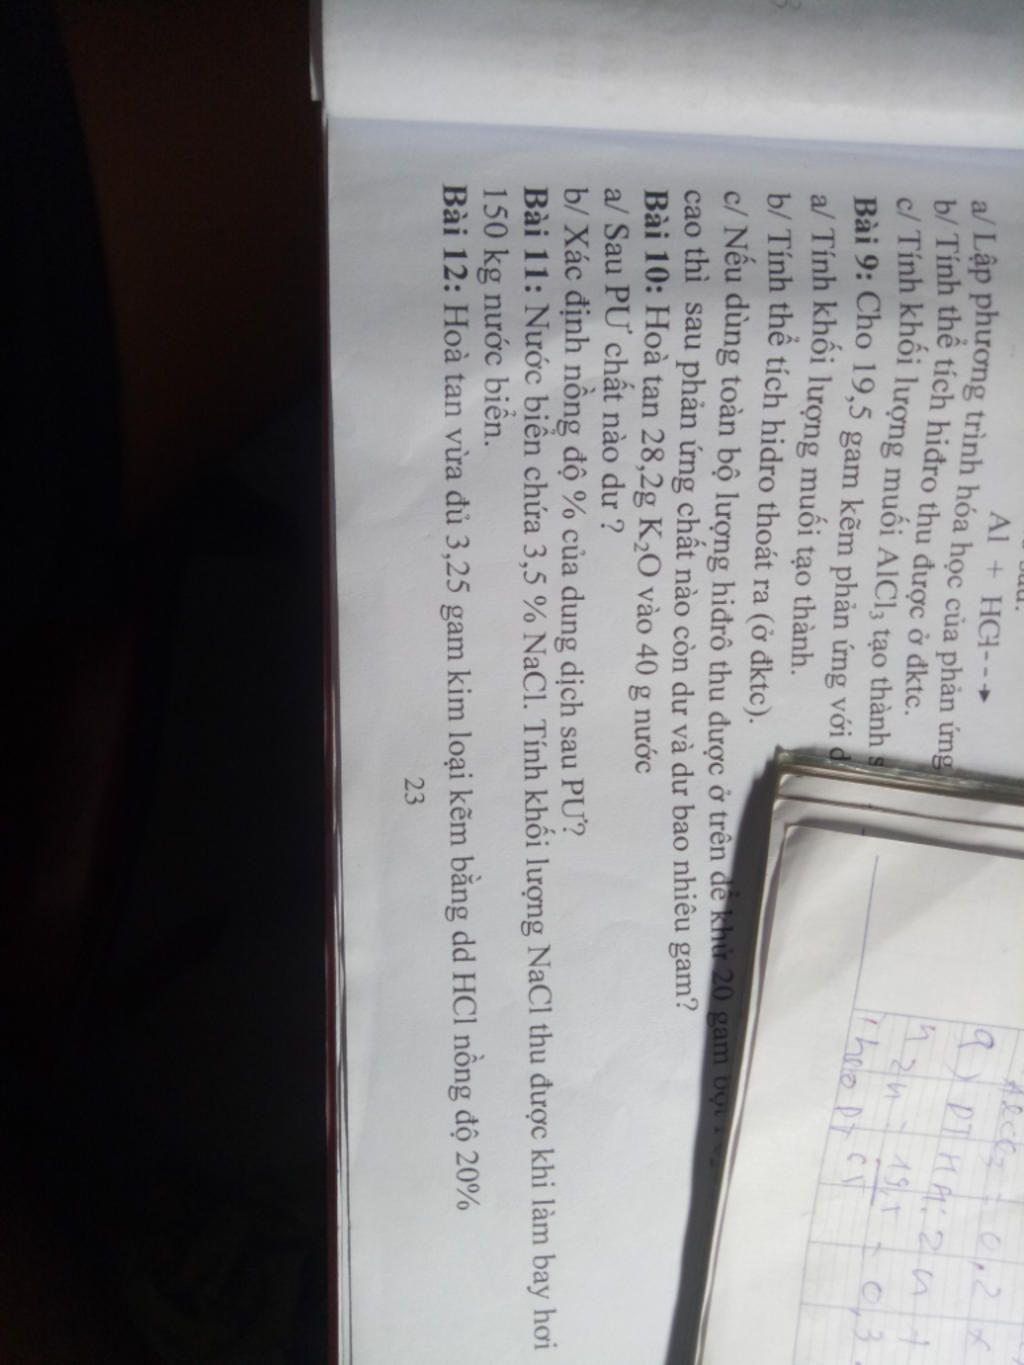 Al + HCl-->
a/ Lập phương trình hóa học của phản ứng
b/ Tính thể tích hiđro thu được ở đktc.
c/ Tính khối lượng muối AlCl₃ tạo thành
Bài 9: Cho 19,5 gam kẽm phản ứng với
a/ Tính khối lượng muối tạo thành.
b/ Tính thể tích hidro thoát ra (ở đktc).
c/ Nếu dùng toàn bộ lượng hiđrô thu được ở trên để khử 20 gam bột
cao thì sau phản ứng chất nào còn dư và dư bao nhiêu gam?
Bài 10: Hoà tan 28,2g K₂O vào 40 g nước
a/ Sau PƯ chất nào dư ?
b/ Xác định nồng độ % của dung dịch sau PƯ?
Bài 11: Nước biển chứa 3,5 % NaCl. Tính khối lượng NaCl thu được khi làm bay hơi
150 kg nước biển.
Bài 12: Hoà tan vừa đủ 3,25 gam kim loại kẽm bằng dd HCl nồng độ 20%
23
AlCl3 = 0,2 x
a) PTHH: Zn +
nZn = 19,5 = 0,3
theo PT